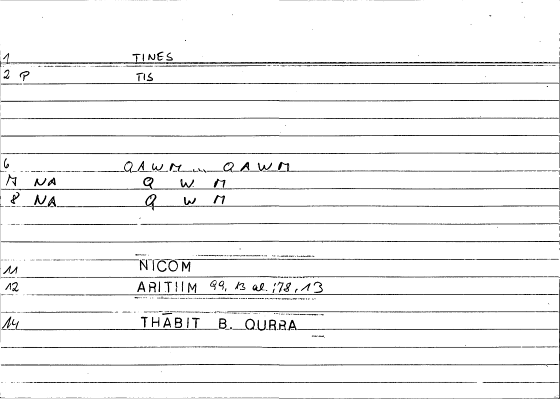 1 TINES
2 P TIS
6 QAWM ... QAWM
7 NA Q W M
8 NA Q W M
11 NICOM
12 ARITIIM 99, 13 al.; 78, 13
14 THĀBIT B. QURRA